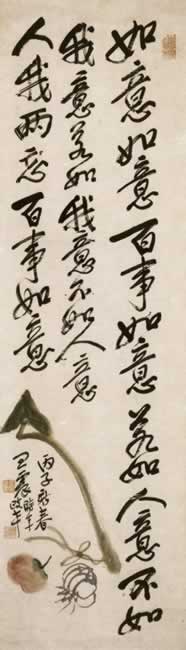 如意如意百事如意若如人意不如
我意若如我意不如人意
人我兩忘百事如意
丙子新春
王震時年